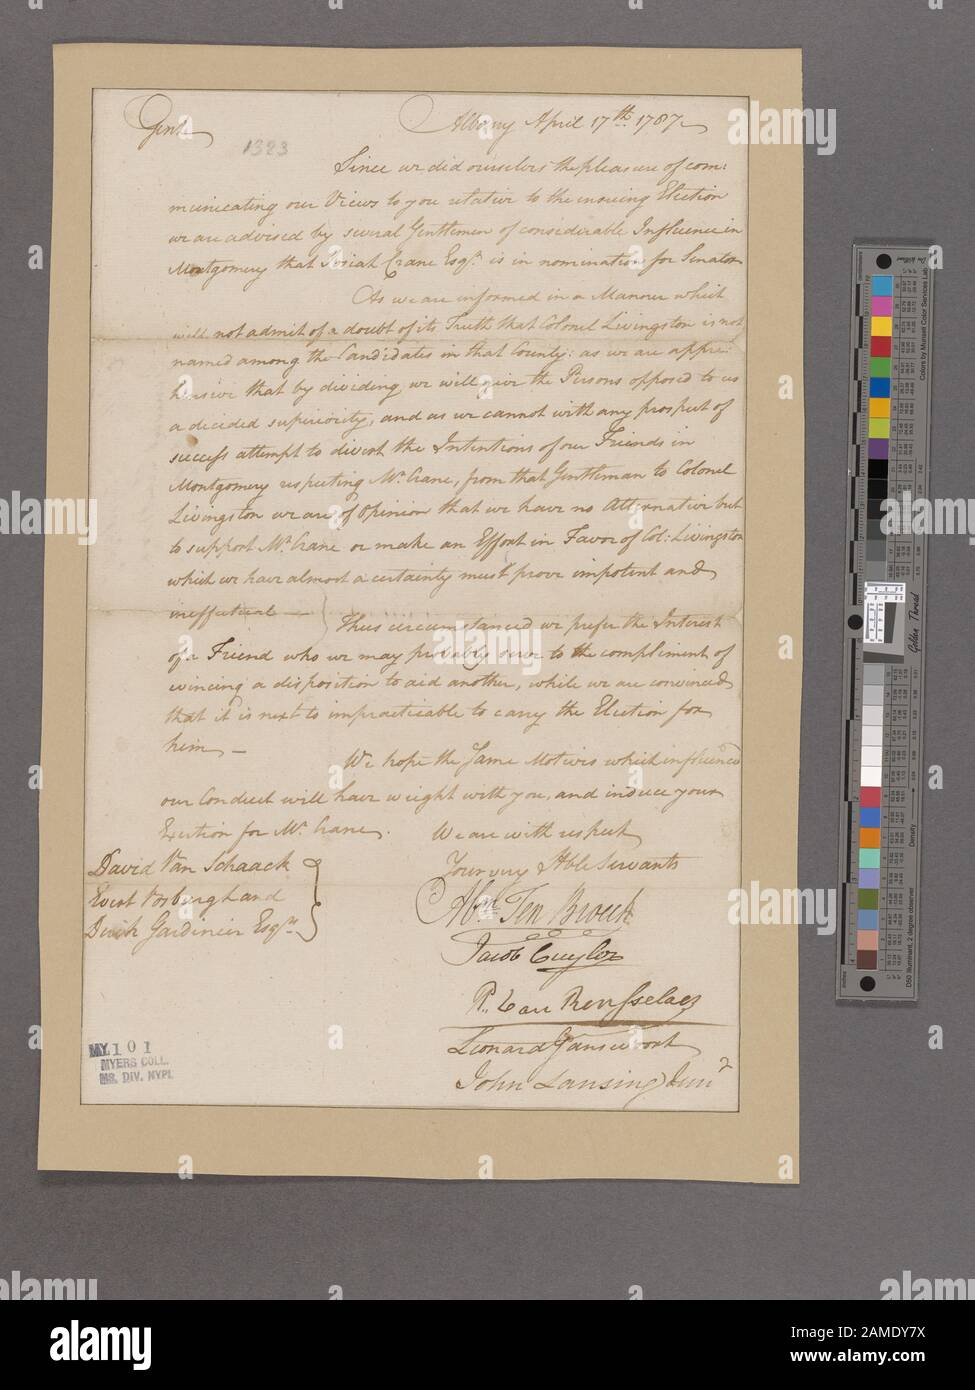 Gent.
Albany April 17th. 1787
1323
Since we did ourselves the pleasure of com:
municating our Views to you relative to the insuing Election
we are advised by several Gentlemen of considerable Influence in
Montgomery that Josiah Crane Esqr. is in nomination for Senator
As we are informed in a Manner which
will not admit of a doubt of its Truth that Colonel Livingston is not
named among the Candidates in that County: as we are appre:
hensive that by dividing, we will give the Persons opposed to us
a decided superiority, and as we cannot with any prospect of
success attempt to divert the Intentions of our Friends in
Montgomery respecting Mr. Crane, from that Gentleman to Colonel
Livingston we are of Opinion that we have no Alternative but
to support Mr. Crane or make an Effort in Favor of Col: Livingston
which we have almost a certainty must prove impotent and
ineffectual —
Thus circumstanced we prefer the Interest
of a Friend who we may probably serve to the compliment of
evincing a disposition to aid another, while we are convinced
that it is next to impracticable to carry the Election for
him —
We hope the Same Motives which influenced
our Conduct will have weight with you, and induce your
Exertion for Mr. Crane.
We are with respect
Your very Hble Servants
David Van Schaack
Evert Vosburgh and
Dirck Gardineir Esqrs.
Abm. Ten Broeck
Jacob Cuyler
P. Van Rensselaer
Leonard Gansevoort
John Lansing Junr
MY 101
MYERS COLL.
MS. DIV. NYPL
Golden Thread
Colors by Munsell Color Services Lab
Density
D50 Illuminant, 2 degree observer
alamy
Image ID: 2AMDY7X
www.alamy.com